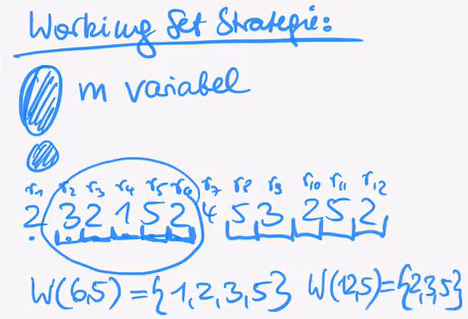 Working Set Strategie:
m variabel
r1 r2 r3 r4 r5 r6 r7 r8 r9 r10 r11 r12
2 3 2 1 5 2 4 5 3 2 5 2
W(6,5) = {1,2,3,5} W(12,5) = {2,3,5}